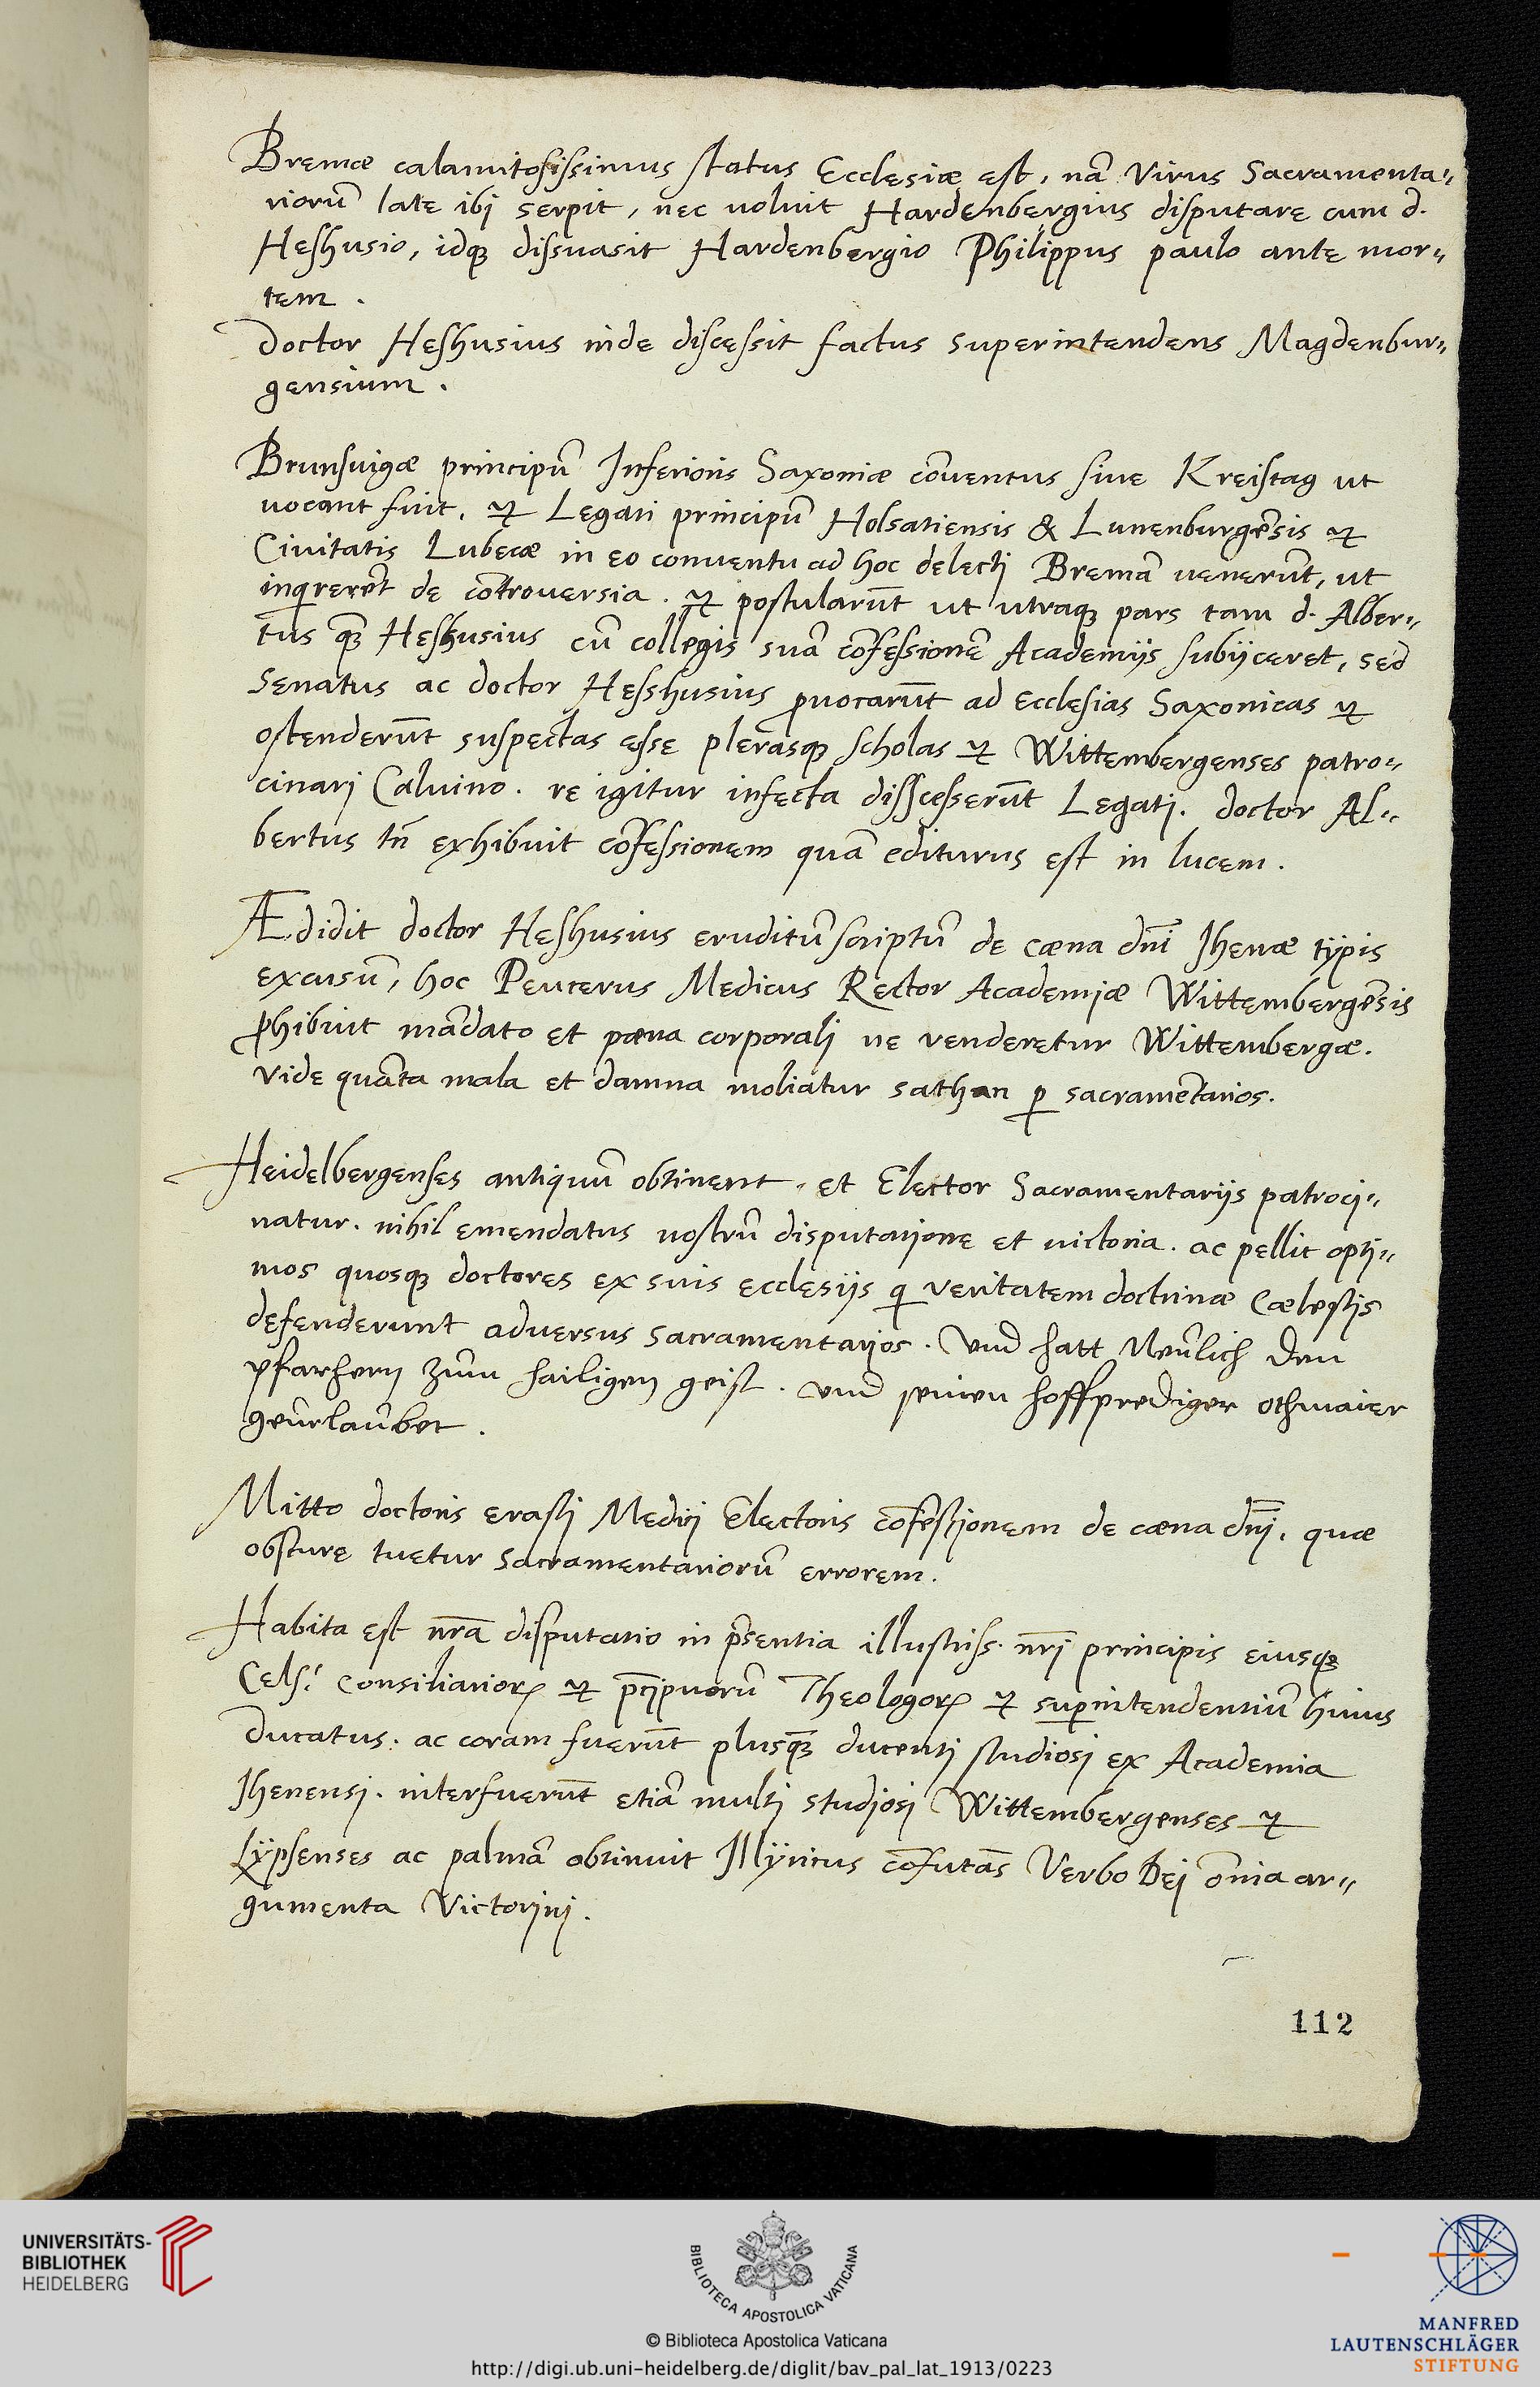 Bremæ calamitosissimus status Ecclesiæ est, nā Virus Sacramenta⸗
riorū late ibi serpit, nec voluit Hardenbergius disputare cum d.
Heshusio, idqꝫ dissuasit Hardenbergio Philippus paulo ante mor⸗
tem.
Doctor Heshusius inde discessit factus superintendens Magdenbur⸗
gensium.
Brunsuigæ principū Inferioris Saxoniæ cōuentus siue Kreistag ut
uocant fuit, et Legati principū Holsatiensis & Lunenburgēsis et
Ciuitatis Lubecæ in eo conuentu ad hoc delecti Bremā uenerūt, ut
inqrerēt de cōtrouersia. et postularūt ut utraqꝫ pars tam d. Alber⸗
tus qꝫ̄ Heshusius cū collegis suā cōfessionē Academijs subijceret, sed
Senatus ac doctor Hesshusius ꝓuocarūt ad Ecclesias Saxonicas et
ostenderūt suspectas esse plerasqꝫ scholas et Wittembergenses patro⸗
cinari Caluino. re igitur infecta disscesserūt Legati. doctor Al⸗
bertus tn̄ exhibuit cōfessionem quā editurus est in lucem.
Ædidit doctor Heshusius eruditū scriptū de cæna dnī Jhenæ tÿpis
excusū, hoc Peucerus Medicus Rector Academiæ Wittembergēsis
ꝓhibuit mādato et pæna corporali ne venderetur Wittembergæ.
Vide quāta mala et damna moliatur sathan ꝑ sacramētarios.
Heidelbergenses antiquū obtinent, et Elector Sacramentarijs patroci⸗
natur. nihil emendatus nostrū disputatione et uictoria. ac pellit opti⸗
mos quosqꝫ doctores ex suis ecclesijs q veritatem doctrinæ Cælestis
defenderunt aduersus sacramentarios. Vnd hatt Neulich den
pfarhern zum hailigen geist. vnd seinen hoffprediger othmaier
geurlaubet.
Mitto doctoris erasti Medici Electoris cōfessionem de cæna dnī, quæ
obscure tuetur sacramentariorū errorem.
Habita est nr̄a disputatio in pr̄sentia illustriss. nr̄i principis eiusqꝫ
Cels. consiliarioꝝ et pc̄ipuorū Theologoꝝ et suꝑintendentiū huius
Ducatus. ac coram fuerūt plusqꝫ̄ ducenti studiosi ex Academia
Jhenensi. interfuerūt etiā multi studiosi Wittembergenses et
Lÿpsenses ac palmā obtinuit Jllÿricus cōfutās Verbo Dei oīa ar⸗
gumenta Victorini.
112
UNIVERSITÄTS-
BIBLIOTHEK
HEIDELBERG
BIBLIOTECA APOSTOLICA VATICANA
© Biblioteca Apostolica Vaticana
http://digi.ub.uni-heidelberg.de/diglit/bav_pal_lat_1913/0223
MANFRED
LAUTENSCHLÄGER
STIFTUNG